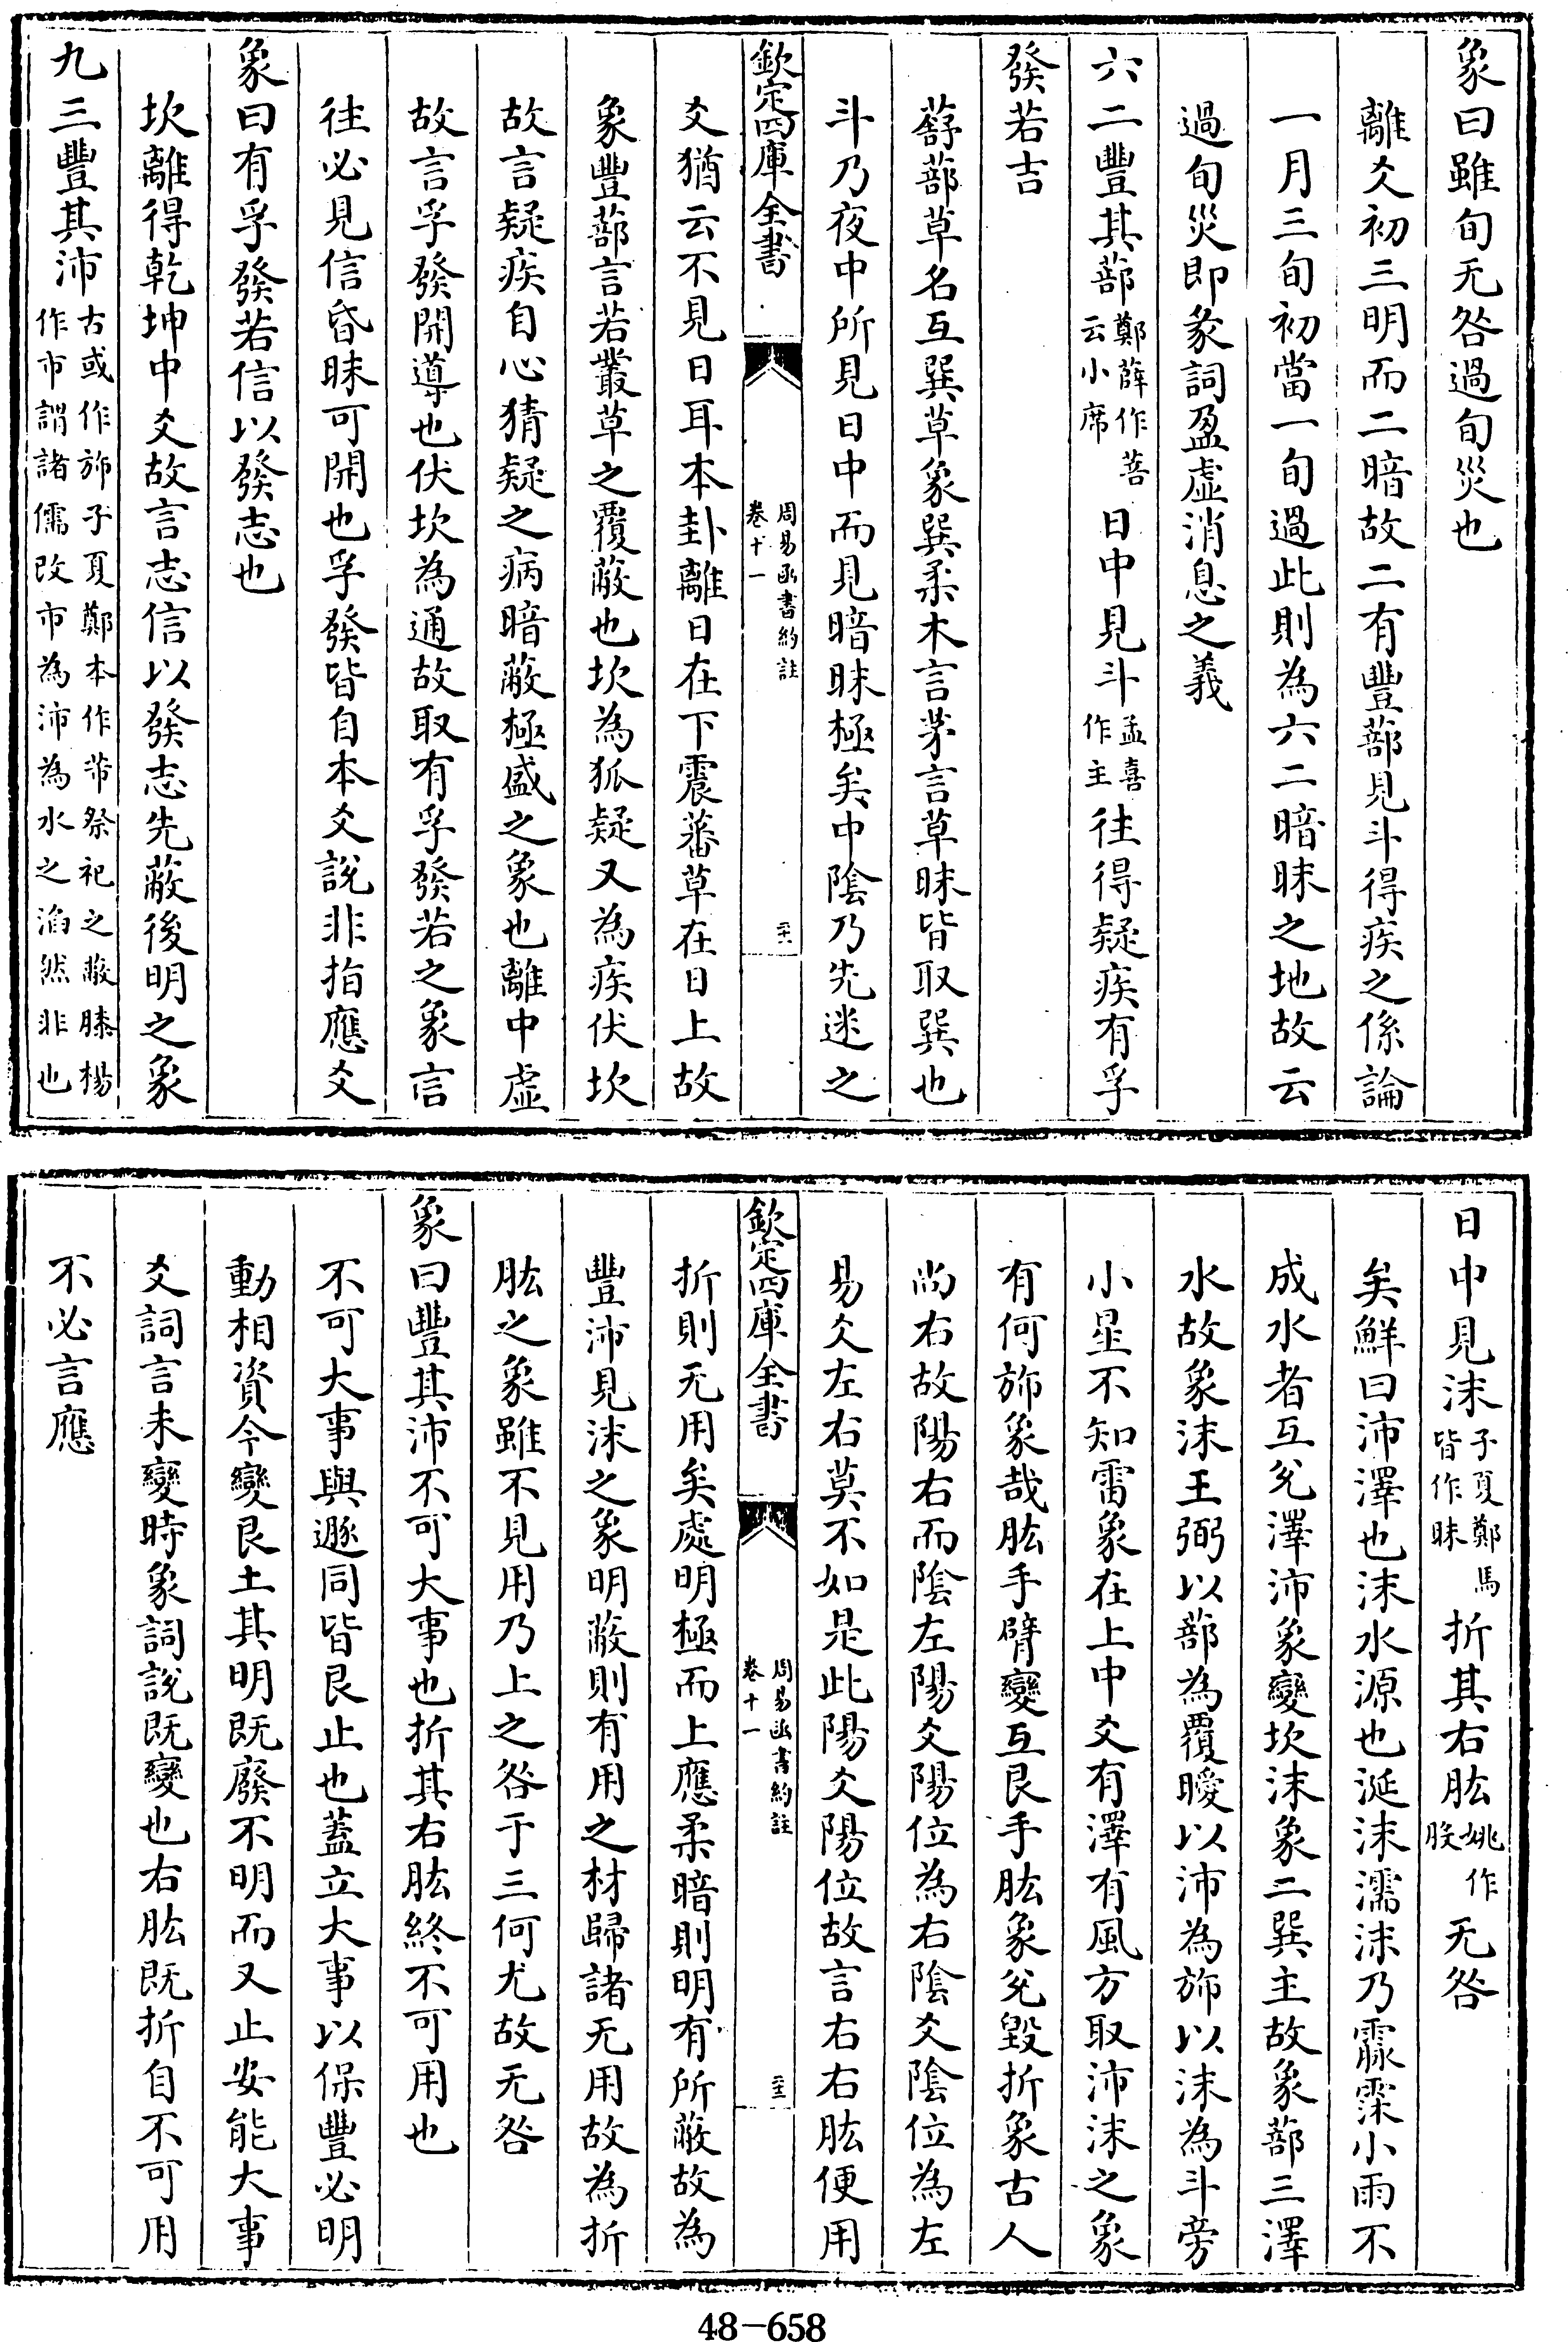 象曰雖旬无咎過旬災也
離爻初三明而二暗故二有豐蔀見斗得疾之係論
一月三旬初當一旬過此則為六二暗昧之地故云
過旬災即彖詞盈虛消息之義
六二豐其蔀鄭薛作菩云小席日中見斗孟喜作主往得疑疾有孚
發若吉
蔀草名互巽草象巽柔木言茅言草昧皆取巽也
斗乃夜中所見日中而見暗昧極矣中隂乃先迷之
欽定四庫全書
周易函書約註
卷十一
爻猶云不見日耳本卦離日在下震蕃草在日上故
象豐蔀言若叢草之覆蔽也坎為狐疑又為疾伏坎
故言疑疾自心猜疑之病暗蔽極盛之象也離中虛
故言孚發開導也伏坎為通故取有孚發若之象言
往必見信昏昧可開也孚發皆自本爻說非指應爻
象曰有孚發若信以發志也
坎離得乾坤中爻故言志信以發志先蔽後明之象
九三豐其沛古或作斾子夏鄭本作芾祭祀之蔽膝楊作市謂諸儒改市為沛為水之滔然非也
日中見沬子夏鄭馬皆作昧折其右肱姚作股无咎
矣鮮曰沛澤也沬水源也涎沬濡沬乃霡霂小雨不
成水者互兌澤沛象變坎沬象二巽主故象蔀三澤
水故象沬王弼以蔀為覆曖以沛為斾以沬為斗旁
小星不知雷象在上中爻有澤有風方取沛沬之象
有何斾象哉肱手臂變互艮手肱象兌毀折象古人
尚右故陽右而隂左陽爻陽位為右隂爻隂位為左
易爻左右莫不如是此陽爻陽位故言右右肱便用
欽定四庫全書
周易函書約註
卷十一
折則无用矣處明極而上應柔暗則明有所蔽故為
豐沛見沬之象明蔽則有用之材歸諸无用故為折
肱之象雖不見用乃上之咎于三何尤故无咎
象曰豐其沛不可大事也折其右肱終不可用也
不可大事與遯同皆艮止也蓋立大事以保豐必明
動相資今變艮土其明既廢不明而又止安能大事
爻詞言未變時象詞說既變也右肱既折自不可用
不必言應
48-658